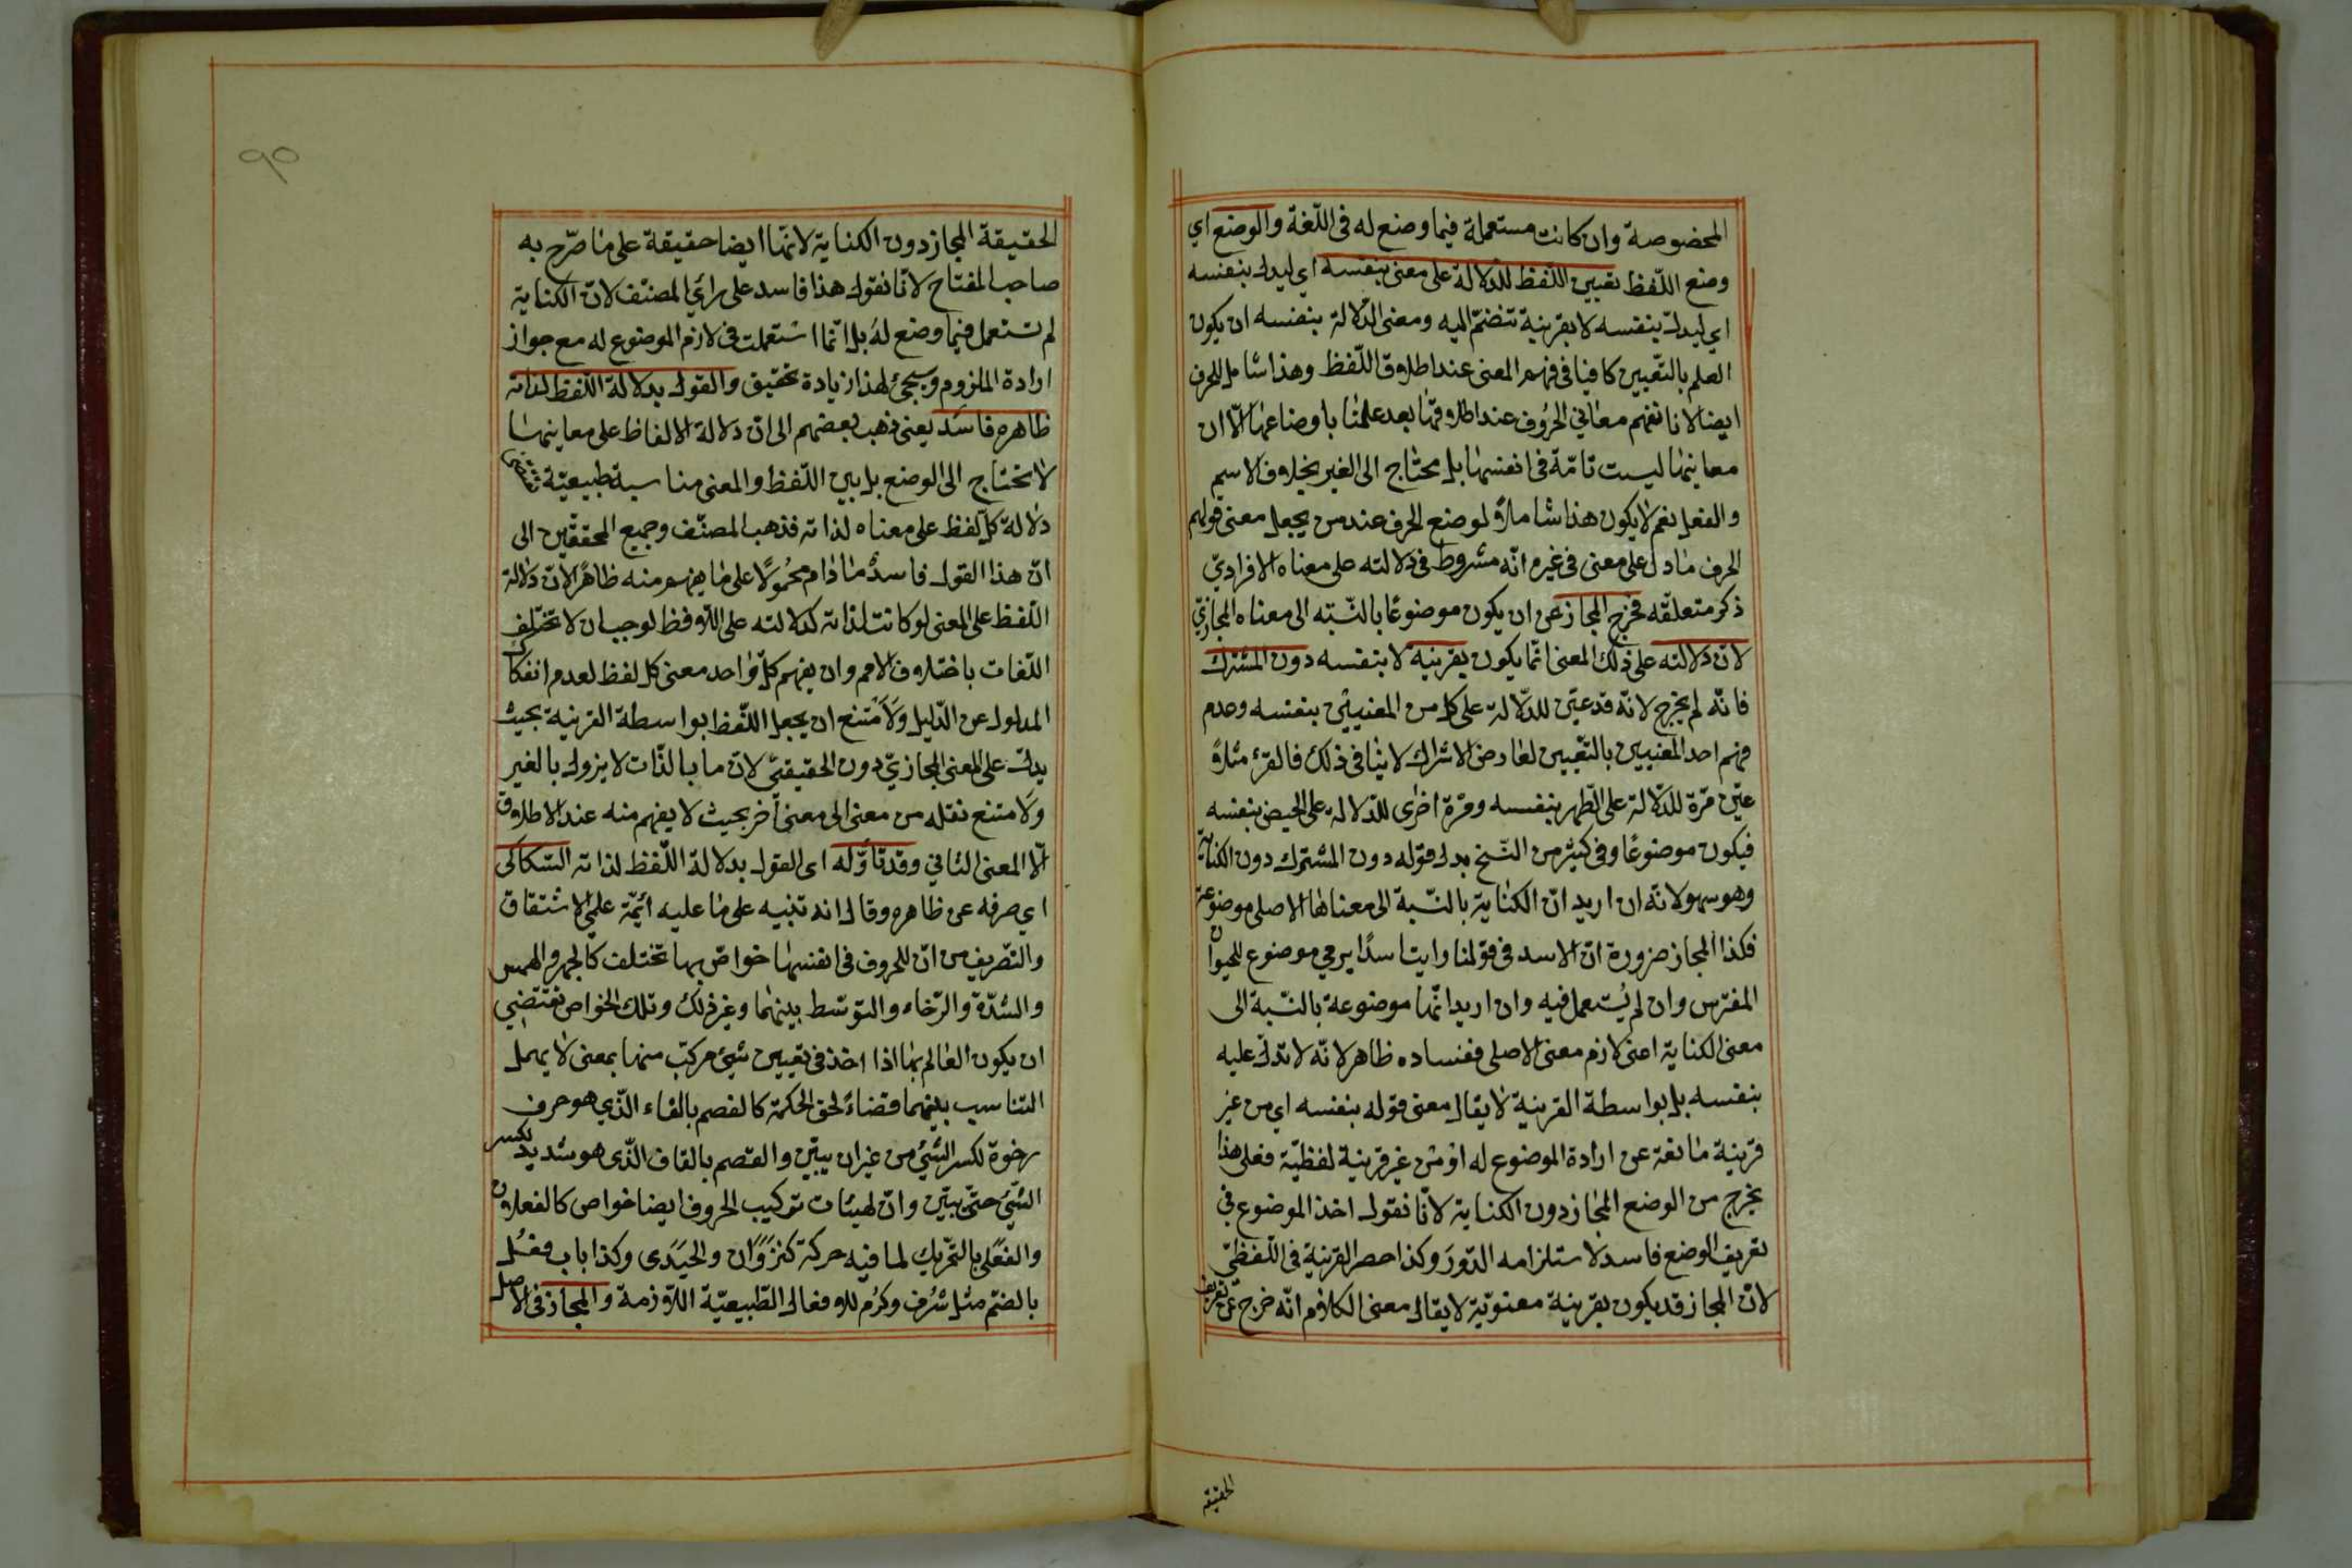 المخصوصة وان كانت مستعملة فيما وضع له فى اللّغة والوضع اي
وضع اللّفظ تعيين اللّفظ للدّلالة على معنى بنفسه اي ليدل بنفسه
اي ليدلّ بنفسه لا بقرينة تنضمّ اليه ومعنى الدّلالة بنفسه ان يكون
العلم بالتّعيين كافيا فى فهم المعنى عند اطلاق اللّفظ وهذا شامل للحرف
ايضا لانا نفهم معاني الحروف عند اطلاقها بعد علمنا باوضاعها الّا ان
معانيها ليست تامّة فى انفسها بل يحتاج الى الغير بخلاف الاسم
والفعل نعم لا يكون هذا شاملاً لوضع الحرف عند من يجعل معنى قولهم
الحرف ما دل على معنى فى غيره انّه مشروط فى دلالته على معناه الافراديّ
ذكر متعلّقه فخرج المجاز عن ان يكون موضوعًا بالنّسبه الى معناه المجازيّ
لانّ دلالته على ذلك المعنى انّما يكون بقرينة لا بنفسه دون المشترك
فانّه لم يخرج لانّه قد عيّن للدّلالة على كل من المعنيين بنفسه وعدم
فهم احد المعنيين بالتّعيين لعارض الاشتراك لا ينافى ذلك فالقرء مثلاً
عيّن مرّة للدّلالة على الطّهر بنفسه ومرّة اخرى للدّلالة على الحيض بنفسه
فيكون موضوعًا وفى كثير من النّسخ بدل قوله دون المشترك دون الكناية
وهو سهو لانّه ان اريد انّ الكناية بالنّسبة الى معناها الاصلى موضوعة
فكذا المجاز ضرورة انّ الاسد فى قولنا رايت اسدًا يرمي موضوع للحيوان
المفترس وان لم يُستعمل فيه وان اريد انّها موضوعة بالنّسبة الى
معنى الكناية اعنى لازم معنى الاصلى ففساده ظاهر لانّه لا تدلّ عليه
بنفسه بل بواسطة القرينة لا يقال معنى قوله بنفسه اي من غير
قرينة مانعة عن ارادة الموضوع له او من غير قرينة لفظيّة فعلى هذا
يخرج من الوضع المجاز دون الكناية لانّا نقول اخذ الموضوع فى
تعريف الوضع فاسد لاستلزامه الدّور وكذا حصر القرينة فى اللّفظىّ
لانّ المجاز قد يكون بقرينة معنويّة لا يقال معنى الكلام انّه خرج عن تعريف
الحقيقة
٩٥
الحقيقة المجاز دون الكناية لانّها ايضا حقيقة على ما صرّح به
صاحب المفتاح لانّا نقول هذا فاسد على رائي المصنّف لانّ الكناية
لم تستعمل فيما وضع له بل انّما استعملت فى لازم الموضوع له مع جواز
ارادة الملزوم وسيجئ لهذا زيادة تحقيق والقول بدلالة اللّفظ لذاته
ظاهره فاسد يعنى ذهب بعضهم الى انّ دلالة الالفاظ على معانيها
لا تحتاج الى الوضع بل بين اللّفظ والمعنى مناسبة طبيعيّة تقتضى
دلالة كلّ لفظ على معناه لذاته فذهب المصنّف وجميع المحققّين الى
انّ هذا القول فاسد ما دام محمولًا على ما يفهم منه ظاهرًا لانّ دلالة
اللّفظ على المعنى لو كانت لذاته كدلالته على اللّافظ لوجب ان لا تختلف
اللّغات باختلاف الامم وان يفهم كلّ واحد معنى كل لفظ لعدم انفكاك
المدلول عن الدّليل ولامتنع ان يجعل اللّفظ بواسطة القرينة بحيث
يدلّ على المعنى المجازيّ دون الحقيقيّ لانّ ما بالذّات لا يزول بالغير
ولامتنع نقله من معنى الى معنى آخر بحيث لا يفهم منه عند الاطلاق
الّا المعنى الثاني وقد تأوّله اى القول بدلالة اللّفظ لذاته السّكاكى
اي صرفه عن ظاهره وقال انه تنبيه على ما عليه ائمّة علمي الاشتقاق
والتّصريف من انّ للحروف فى انفسها خواصّ بها تختلف كالجهر والهمس
والشدّة والرّخاء والتوسّط بينهما وغير ذلك وتلك الخواص تقتضي
ان يكون العالم بها اذا اخذ فى تعيين شيئ مركّب منها بمعنى لا يهمل
التناسب بينهما قضاءً لحق الحكمة كالفصم بالفاء الّذي هو حرف
رخوة لكسر الشيئ من غير ان يبين والقصم بالقاف الّذى هو شديد لكسر
الشّيئ حتّى يبين وانّ لهيئات تركيب الحروف ايضا خواص كالفعلان
والفعلى بالتّحريك لما فيه حركة كنزوان والحيدى وكذا باب فعُل
بالضمّ مثل شرُف وكرُم للافعال الطّبيعيّة اللّازمة والمجاز فى الاصل